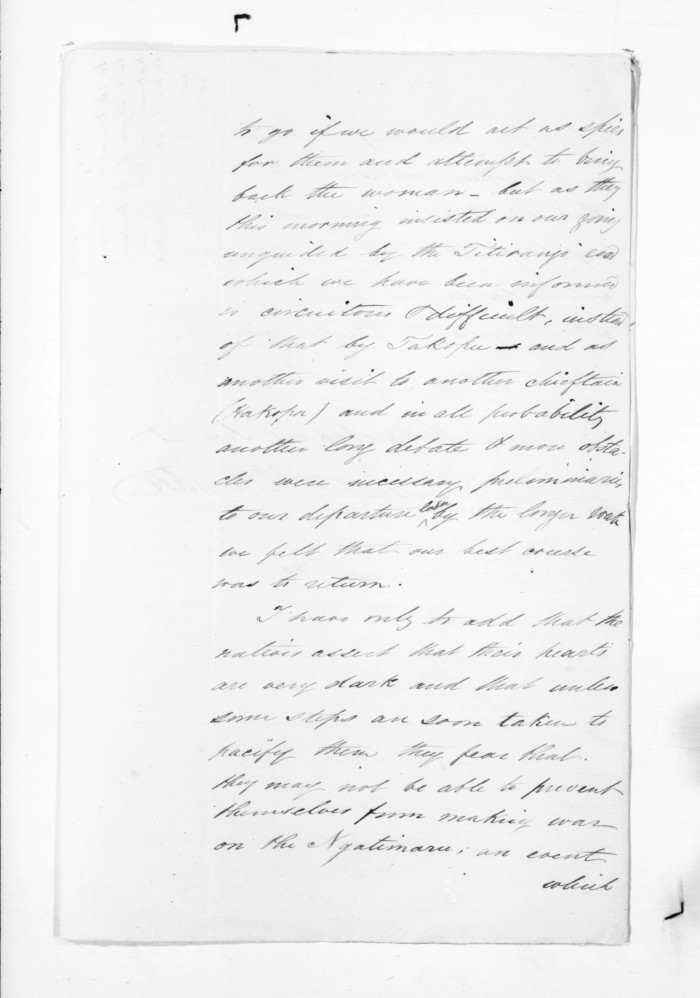 to go if we would act as spies
for them and attempt to bring
back the woman – but as they
this morning insisted on our going
unguided by the Titirangi
which we have been informed
is circuitous & difficult, instead
of that by Takapu – and as
another visit to another chieftain
and in all probability
another long debate & more obsta-
cles were necessary preliminaries
to our departure even by the longer route
we felt that our best course
was to return.
I have only to add that the
natives assert that their hearts
are very dark and that unless
some steps are soon taken to
pacify them they fear that
they may not be able to prevent
themselves from making war
on the Ngatimaru; an event
which